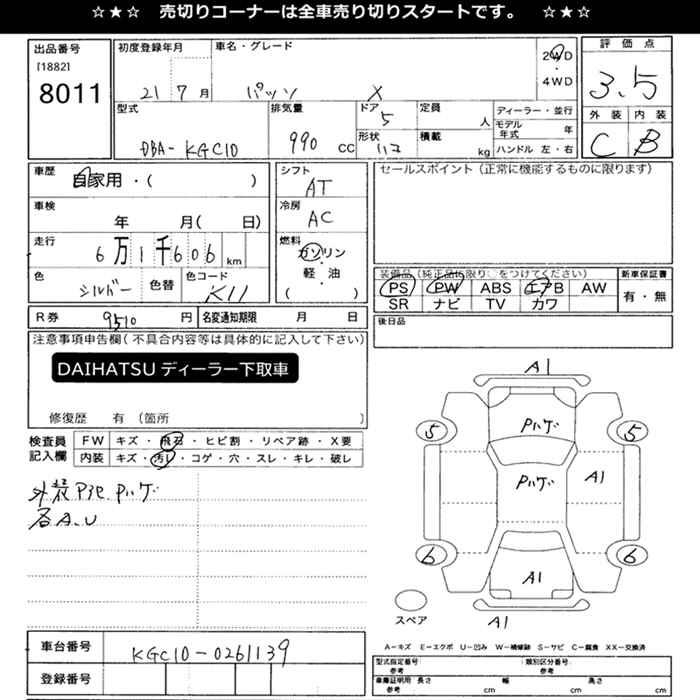 ☆★☆ 売切りコーナーは全車売り切りスタートです。 ☆★☆
出品番号
[1882]
8011
初度登録年月
21 7月
車名・グレード
パッソ X
2WD
・
4WD
評価点
3.5
外装 内装
C B
型式
DBA-KGC10
排気量
990 cc
ドア
5
形状
定員
人
積載
kg
ディーラー・並行
モデル年式 年
ハンドル 左・右
車歴
自家用・( )
車検
年 月( 日)
走行
6万1千606km
色
シルバー
色替
色コード
K11
シフト
AT
冷房
AC
燃料
ガソリン
・
軽・油
( )
セールスポイント(正常に機能するものに限ります)
装備品(純正品に限り○をつけてください)
PS PW ABS エアB AW
SR ナビ TV カワ
新車保証書
有・無
R券 9510 円
名変通知期限 月 日
後日品
注意事項申告欄(不具合内容等は具体的に記入して下さい)
DAIHATSU ディーラー下取車
修復歴 有 (箇所 )
検査員記入欄
FW キズ・飛石・ヒビ割・リペア跡・X要
内装 キズ・汚レ・コゲ・穴・スレ・キレ・破レ
外装 Pハゲ
各A.U
A1
5 Pハゲ 5
Pハゲ A1
6 A1 6
スペア
A1
A-キズ E-エクボ U-凹み W-補修跡 S-サビ C-腐食 XX-交換済
車台番号
KGC10-0261139
登録番号
型式指定番号
参考
類別区分番号
参考
車庫証明用 長さ 幅 高さ
参考 cm cm cm